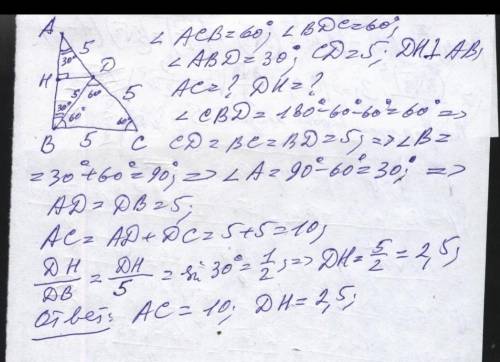 A
5
30°
D
H
5
60°
5
30°
60°
60°
B
5
C
∠ACB=60°; ∠BDC=60°;
∠ABD=30°; CD=5; DH⊥AB;
AC=? DH=?
∠CBD=180°-60°-60°=60° =>
CD=BC=BD=5; => ∠B=
=30°+60°=90°; => ∠A=90°-60°=30°; =>
AD=DB=5;
AC=AD+DC=5+5=10;
DH/DB = DH/5 = sin 30° = 1/2; => DH = 5/2 = 2,5;
Ответ: AC=10; DH=2,5;